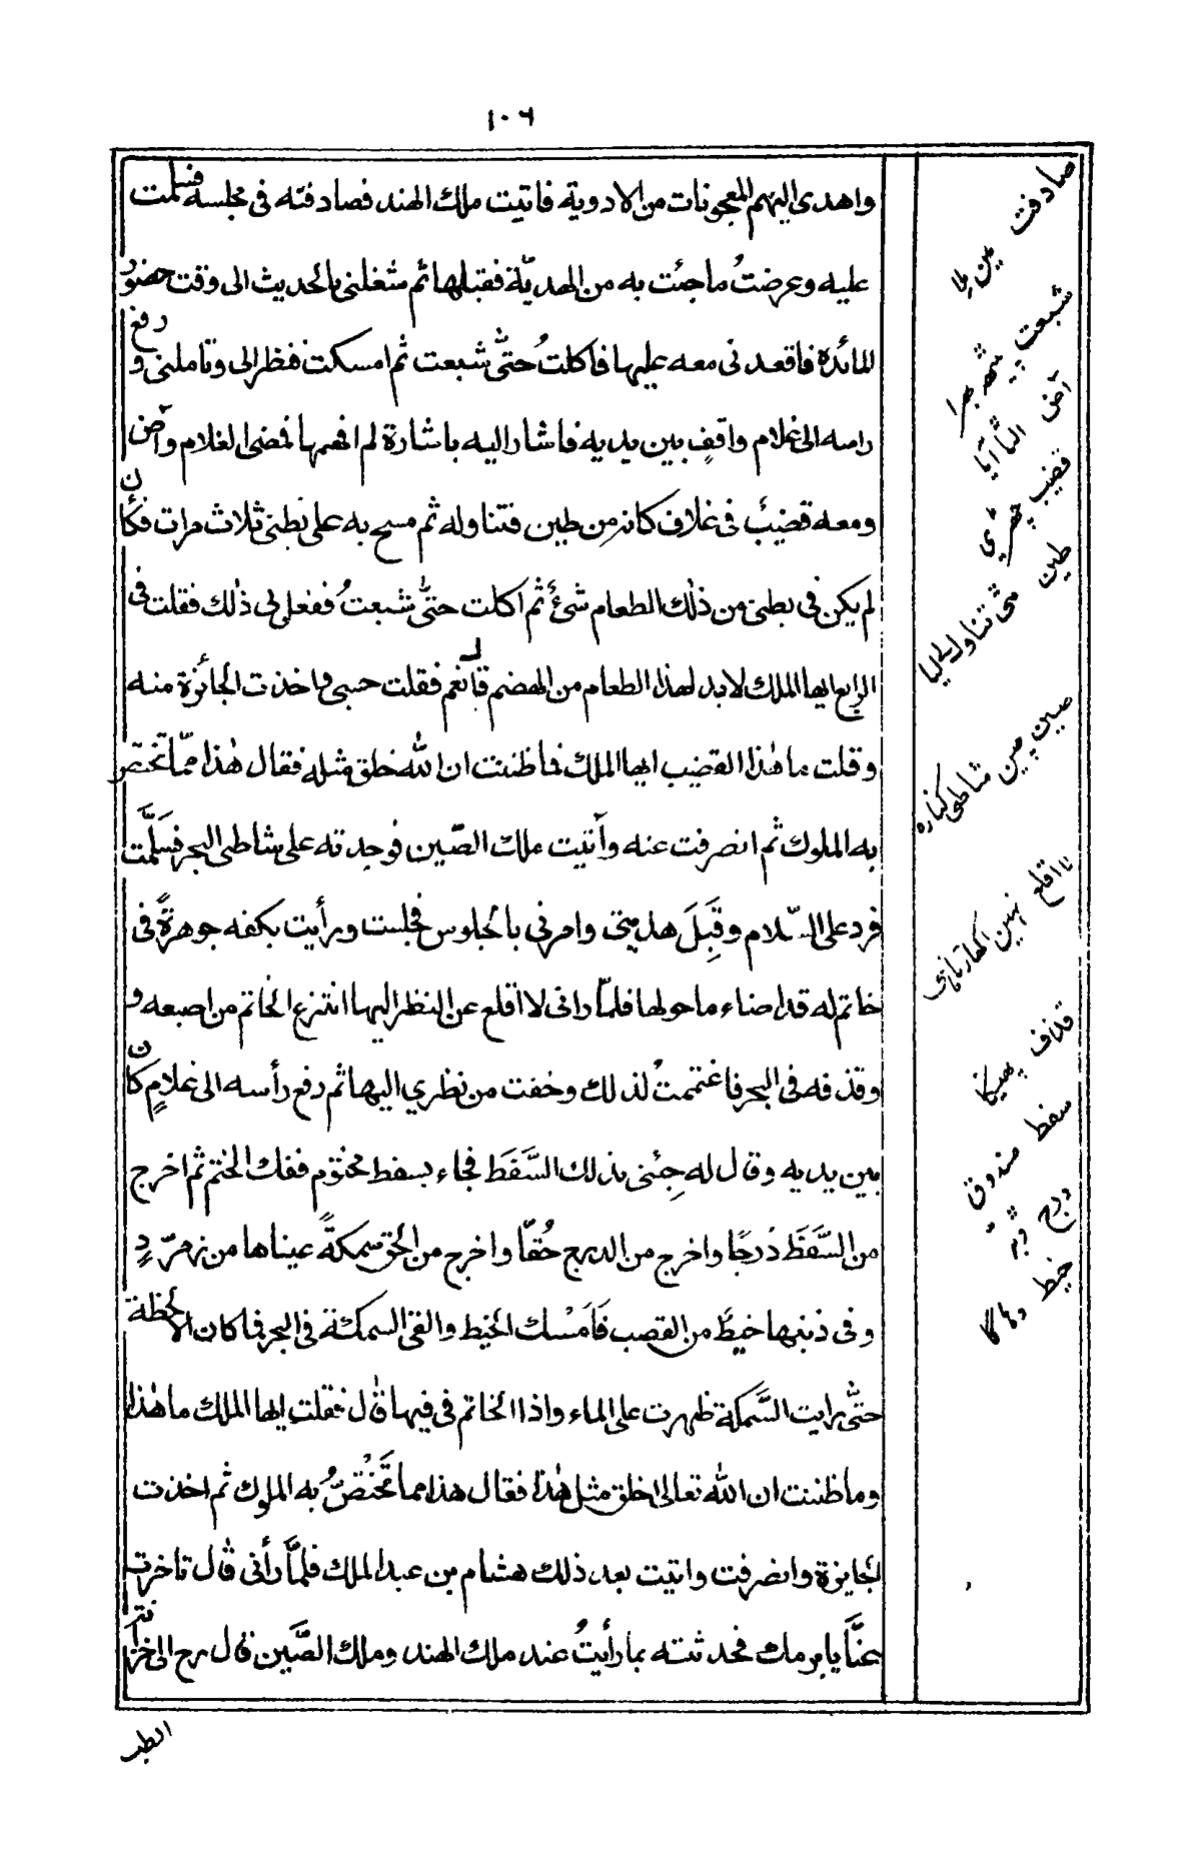 ١٠٦
واهدى اليهم المعجونات من الادوية فاتيت ملك الهند فصادفته فى مجلسه فسلمت
عليه وعرضتُ ما جئت به من الهديّة فقبلها ثم شغلنى بالحديث الى وقت حضور
المائدة فاقعدنى معه عليها فاكلتُ حتّى شبعت ثم امسكت فنظر الى وتاملنى و رفع
راسه الى غلام واقفٍ بين يديه فاشار اليه باشارة لم افهمها فمضى الغلام وآض
ومعه قضيبٌ فى غلاف كانه من طين فتناوله ثم مسح به على بطنى ثلاث مرات فكأن
لم يكن فى بطنى من ذٰلك الطعام شئٌ ثم اكلت حتّى شبعتُ ففعل بى ذٰلك فقلت فى
الرابع ايها الملك لابد لهذا الطعام من الهضم قال نعم فقلت حسبى واخذت الجائزة منه
وقلت ما هٰذا القضيب ايها الملك فما ظننت ان الله خلق مثله فقال هٰذا ممّا تختص
به الملوك ثم انصرفت عنه وأتيت ملك الصّين فوجدته على شاطئ البحر فسَلَّمت
فرد على السّلام وقَبِلَ هديتى وامرنى بالجلوس فجلست ورأيت بكفه جوهرةً فى
خاتم له قد اضاء ما حولها فلمّا رانى لا اقلع عن النظر اليها انتزع الخاتم من اصبعه و
وقذفه فى البحر فاغتممتُ لذلك وخفت من نظري اليها ثم رفع رأسه الى غلامٍ كان
بين يديه وقال له جِئنى بذلك السَّفَط فجاء بسفط مختوم ففك الختم ثم اخرج
من السَّفَط دُرجًا واخرج من الدرج حُقّا واخرج من الحق سمكةً عيناها من زمرّدٍ
وفى ذنبها خيطٌ من القصب فَاَمْسك الخيط والقى السمكة فى البحر فما كان الا لحظة
حتّى رايت السَّمكة ظهرت على الماء واذا الخاتم فى فيها قال فقلت ايها الملك ما هٰذا
وما ظننت ان الله تعالى خلق مثل هٰذا فقال هذا مما تَختصُّ به الملوك ثم اخذت
الجايزة وانصرفت واتيت بعد ذلك هشام بن عبد الملك فلمّا رأنى قال تاخرت
عنَّا يا برمك فحدثته بما رأيتُ عند ملك الهند وملك الصَّين قال رح الى خزانة
الطب
صادفت مين
شبعت پيٹ بھرا
آض الٹا آيا
قضيب چھڑى
طين مٹى تناوله ليا
صين چين شاطئ كناره
لا اقلع نہين
قذف پھينكا
سفط صندوق
درج ڈبہ
خيط دھاگا